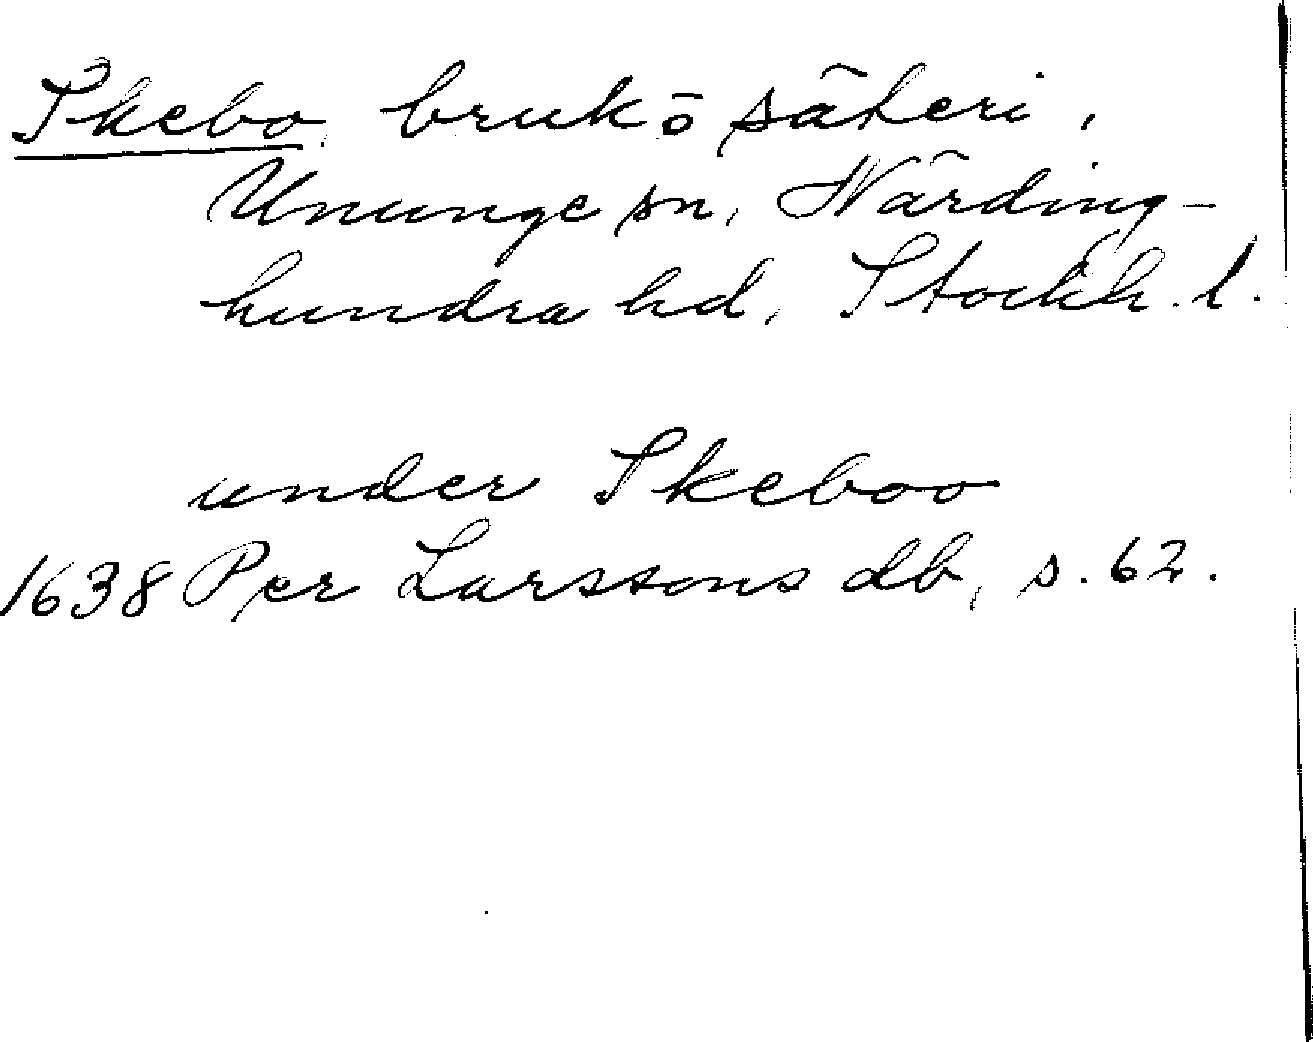 Skebo, bruk ō säteri,
Ununge sn, Närding-
hundra hd, Stockh. l.
under Skeboo
1638 Per Larssons db, s. 62.